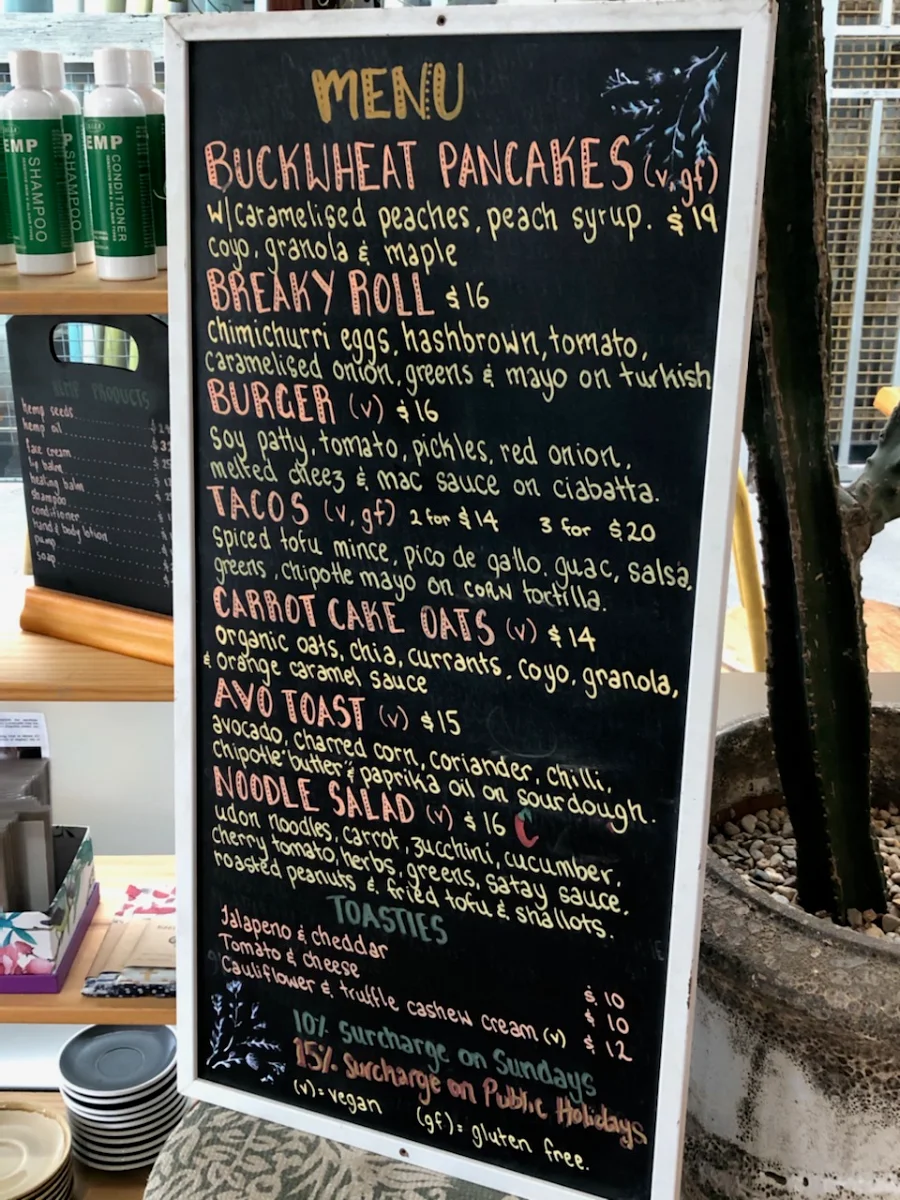 MENU
BUCKWHEAT PANCAKES (v, gf)
w/caramelised peaches, peach syrup. $19
coyo, granola & maple
BREAKY ROLL $16
chimichurri eggs, hashbrown, tomato,
caramelised onion, greens & mayo on turkish
BURGER (v) $16
soy patty, tomato, pickles, red onion,
melted cheez & mac sauce on ciabatta.
TACOS (v, gf) 2 for $14 3 for $20
spiced tofu mince, pico de gallo, guac, salsa,
greens, chipotle mayo on CORN tortilla.
CARROT CAKE OATS (v) $14
organic oats, chia, currants, coyo, granola,
& orange caramel sauce
AVO TOAST (v) $15
avocado, charred corn, coriander, chilli,
chipotle butter & paprika oil on sourdough.
NOODLE SALAD (v) $16
udon noodles, carrot, zucchini, cucumber,
cherry tomato, herbs, greens, satay sauce,
roasted peanuts & fried tofu & shallots.
TOASTIES
Jalapeno & cheddar $10
Tomato & cheese $10
Cauliflower & truffle cashew cream (v) $12
10% surcharge on Sundays
15% surcharge on Public Holidays
(v) = vegan (gf) = gluten free.
EMP SHAMPOO
SHAMPOO
EMP CONDITIONER
HEMP PRODUCTS
hemp seeds
hemp oil
face cream
lip balm
healing balm
shampoo
conditioner
hand & body lotion
pump
soap